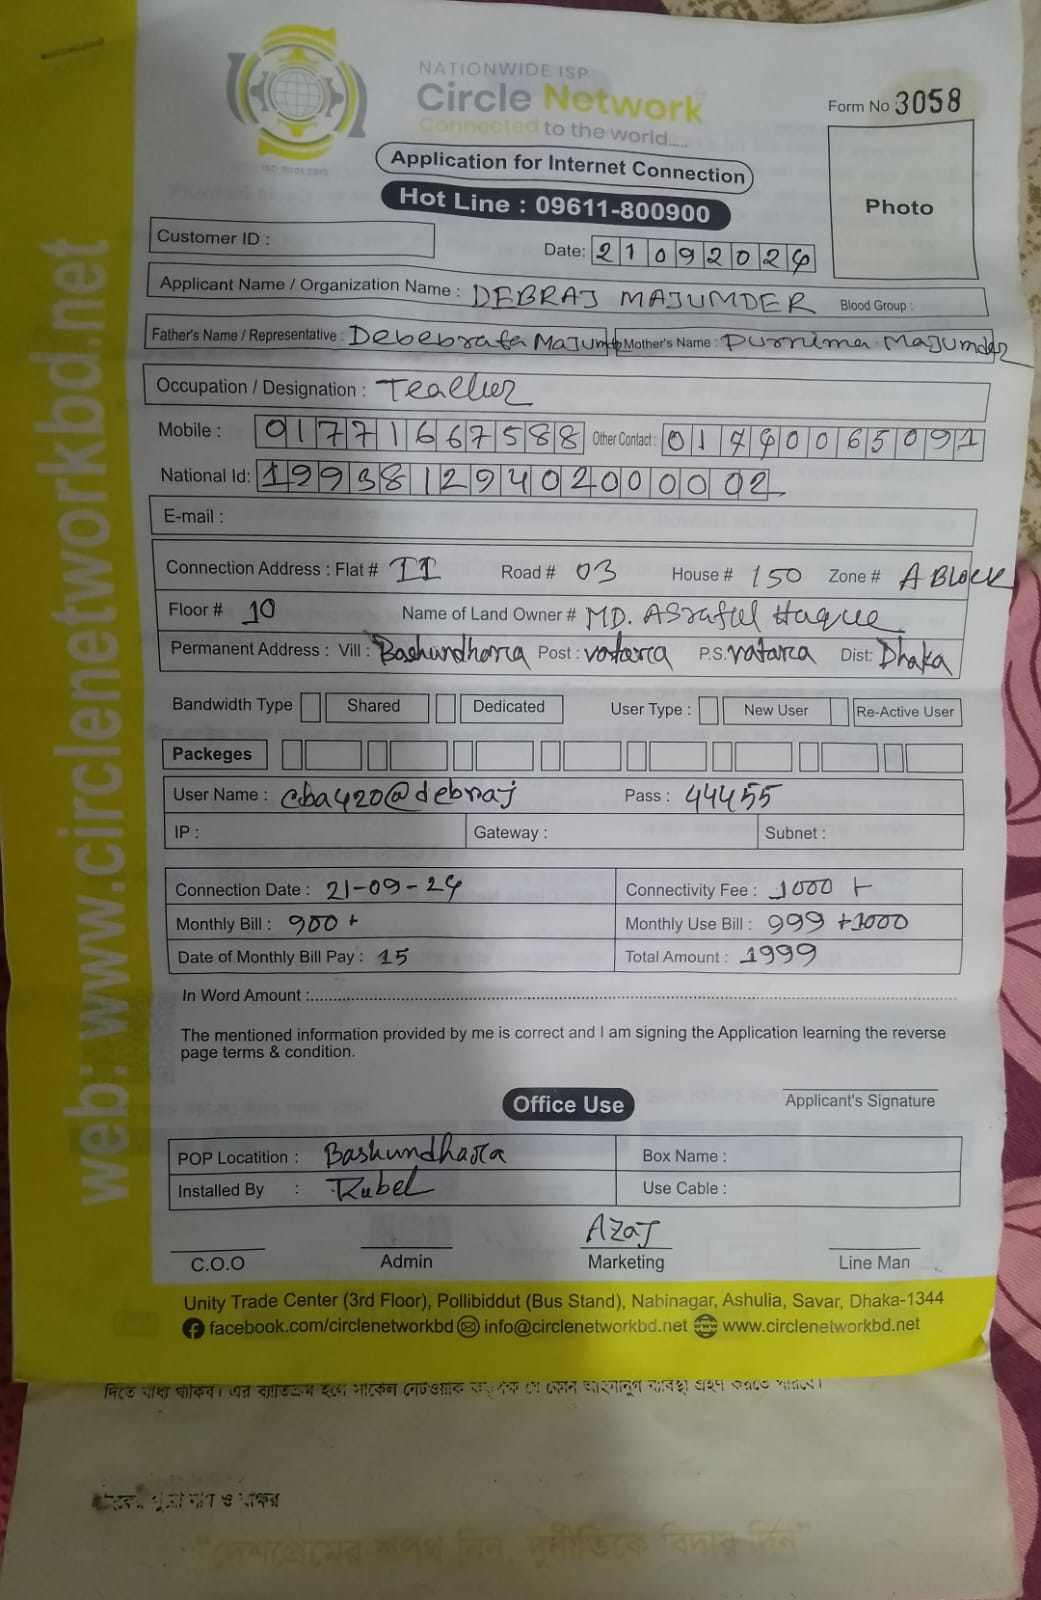 NATIONWIDE ISP
Circle Network
Connected to the world.....
Form No 3058
ISO 9001:2015
Application for Internet Connection
Hot Line : 09611-800900
Photo
Customer ID :
Date: 21092024
Applicant Name / Organization Name : DEBRAJ MAJUMDER Blood Group :
Father's Name / Representative : Debebrata Majumder Mother's Name : Purnima Majumder
Occupation / Designation : Teacher
Mobile : 01771667588 Other Contact : 01740065091
National Id: 19938129402000002
E-mail :
Connection Address : Flat # II Road # 03 House # 150 Zone # A BLOCK
Floor # 10 Name of Land Owner # MD. ASraful Haque
Permanent Address : Vill : Bashundhara Post : vatara P.S. vatara Dist: Dhaka
Bandwidth Type Shared Dedicated User Type : New User Re-Active User
Packeges
User Name : cba420@debraj Pass : 44455
IP : Gateway : Subnet :
Connection Date : 21-09-24 Connectivity Fee : 1000 +
Monthly Bill : 900 + Monthly Use Bill : 999 +1000
Date of Monthly Bill Pay : 15 Total Amount : 1999
In Word Amount :
The mentioned information provided by me is correct and I am signing the Application learning the reverse
page terms & condition.
Applicant's Signature
Office Use
POP Locatition : Bashundhara Box Name :
Installed By : Rubel Use Cable :
AZaJ
C.O.O Admin Marketing Line Man
Unity Trade Center (3rd Floor), Pollibiddut (Bus Stand), Nabinagar, Ashulia, Savar, Dhaka-1344
facebook.com/circlenetworkbd info@circlenetworkbd.net www.circlenetworkbd.net
web: www.circlenetworkbd.net
দিতে বাধ্য থাকিব। এর ব্যতিক্রম হলে সার্কেল নেটওয়ার্ক যে কোন আইনানুগ ব্যবস্থা গ্রহণ করতে পারবে।
নাম ও স্বাক্ষর
“দেশপ্রেমের শপথ নিন, দুর্নীতিকে বিদায় দিন”